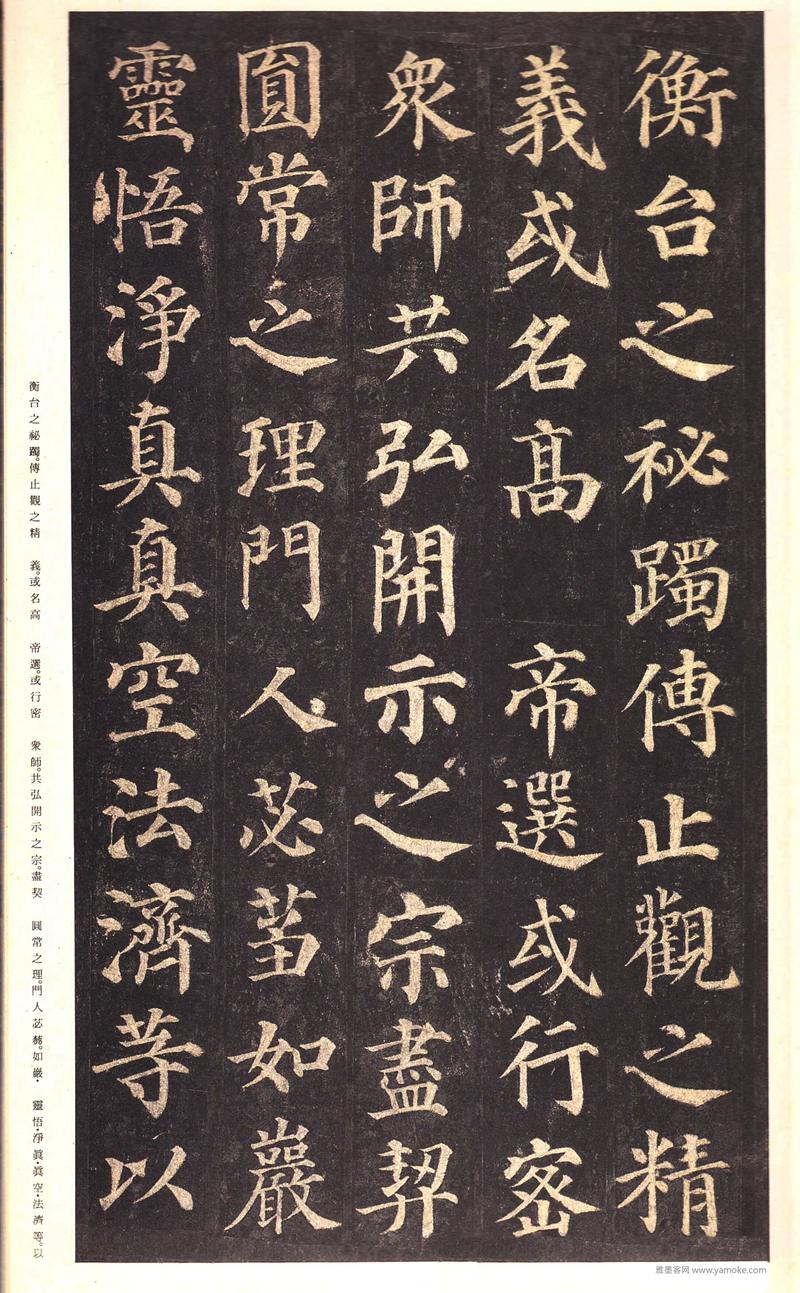 衡台之祕躅傳止觀之精
義或名高　帝選或行密
衆師共弘開示之宗盡契
圓常之理門人苾蒭如巖
靈悟淨真真空法濟等以
衡台之祕躅。傳止觀之精　義。或名高　帝選。或行密　衆師。共弘開示之宗。盡契　圓常之理。門人苾蒭。如巖・　靈悟・淨眞・眞空・法濟等。以
雅墨客网 www.yamoke.com